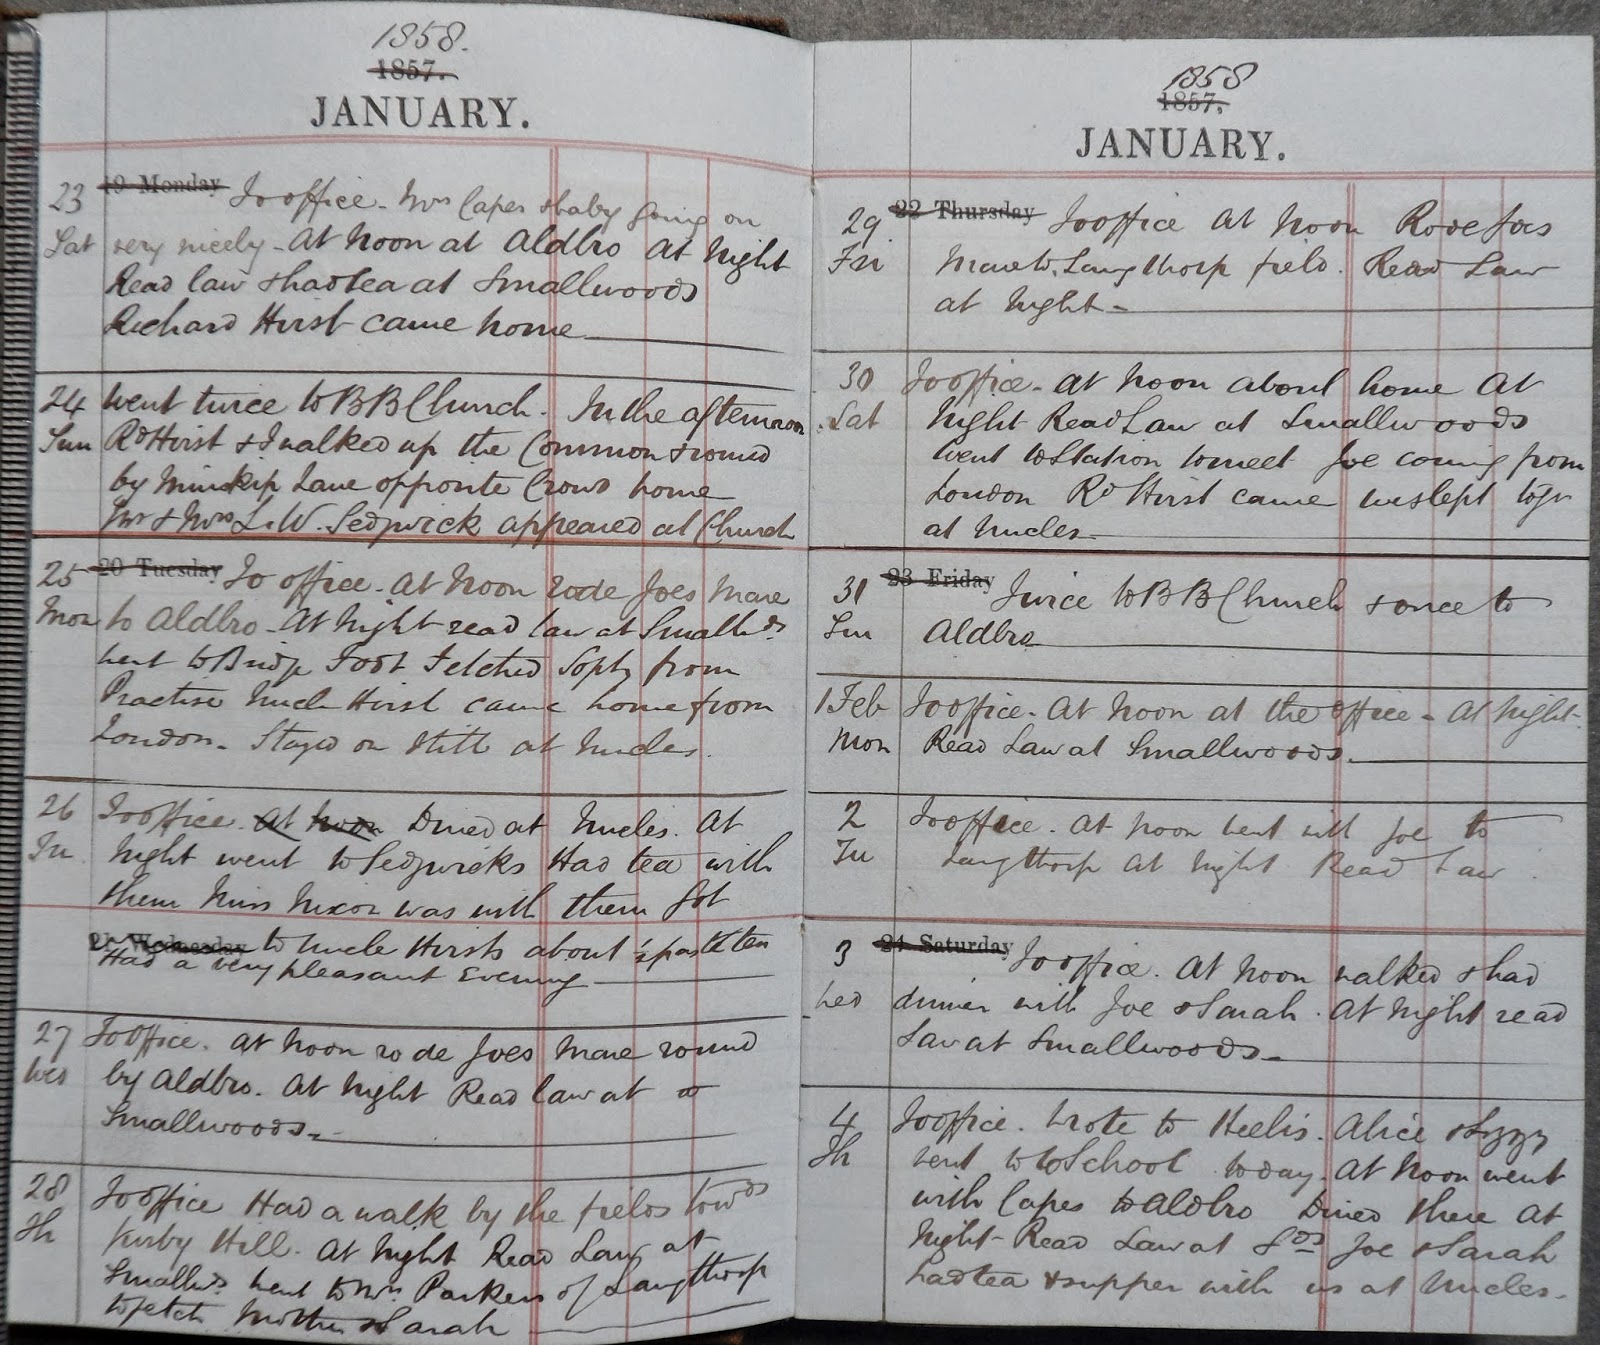 1858.
1857.
JANUARY.
23 19 Monday To office - Mrs Capes & baby going on
Sat very nicely - At Noon at Aldbro At Night
Read law & had tea at Smallwoods
Richard Hirst came home
24 Went twice to BB Church. In the afternoon
Sun Rd Hirst & I walked up the Common & round
by Minskip Lane opposite Crows home
Mr & Mrs L. W. Sedgwick appeared at Church
25 20 Tuesday To office. At Noon rode Joes Mare
Mon to Aldbro - At Night read law at Smallwds
went to Bridge Foot Fetched Sophy from
Practise Uncle Hirst came home from
London - Stayed on still at Uncles.
26 To office. At Noon Dined at Uncles. At
Tu. Night went to Sedgwicks Had tea with
them Miss Nixon was with them Got
21 Wednesday to Uncle Hirsts about ½ past ten
Had a very pleasant Evening
27 To office. At Noon rode Joes Mare round
Wed by Aldbro. At Night Read law at
Smallwoods
28 To office Had a walk by the fields towds
Th Kirby Hill. At Night Read Law at
Smallwds went to Mrs Parkers of Langthorp
to fetch Mother & Sarah
1858
1857.
JANUARY.
29 22 Thursday To office At Noon Rode Joes
Fri Mare to Langthorp field. Read Law
at Night -
30 To office - At Noon about home At
Sat Night Read Law at Smallwoods
Went to Station to meet Joe coming from
London Rd Hirst came we slept togr
at Uncles
31 23 Friday Twice to BB Church & once to
Sun Aldbro
1 Feb To office - At Noon at the office - At Night
Mon Read Law at Smallwoods.
2 To office. At Noon went with Joe to
Tu Langthorp At Night Read Law
3 24 Saturday To office. At Noon walked & had
Wed dinner with Joe & Sarah. At Night read
Law at Smallwoods
4 To office. Wrote to Heelis. Alice & Lizzy
Th went to School today. At Noon went
with Capes to Aldbro Dined there At
Night - Read Law at Joe & Sarah
had tea & supper with us at Uncles.